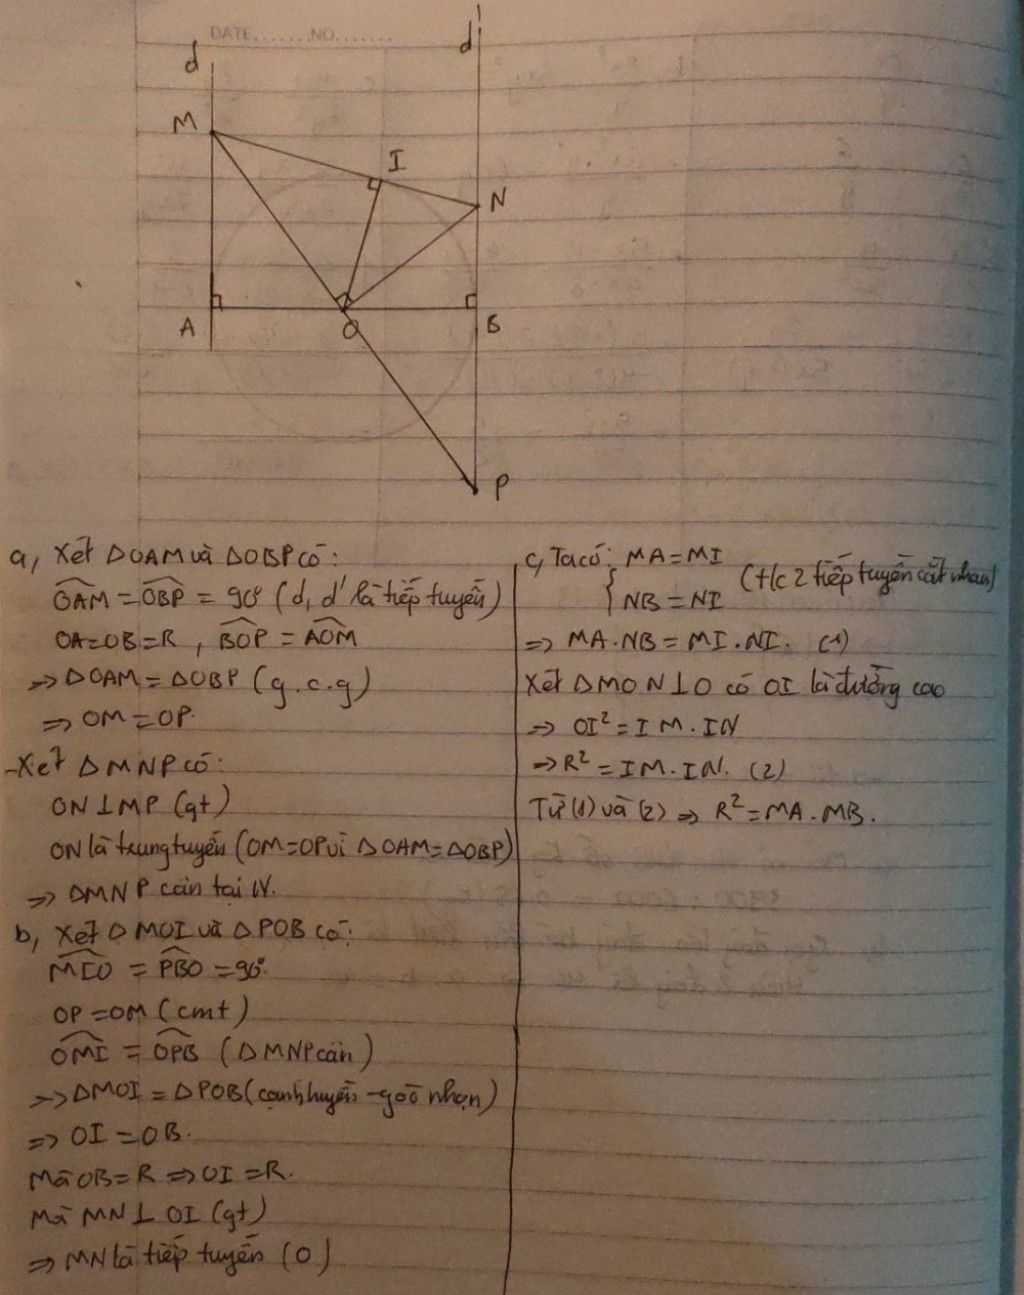 DATE.......NO.......
d
d'
M
I
N
A
O
B
P
a, Xét ΔOAM và ΔOBP có:
\widehat{OAM} = \widehat{OBP} = 90° (d, d' là tiếp tuyến)
OA=OB=R, \widehat{BOP} = \widehat{AOM}
=> ΔOAM = ΔOBP (g.c.g)
=> OM = OP.
-Xét ΔMNP có:
ON⊥MP (gt)
ON là trung tuyến (OM=OP vì ΔOAM=ΔOBP)
=> ΔMNP cân tại N.
b, Xét ΔMOI và ΔPOB có:
\widehat{MIO} = \widehat{PBO} = 90°.
OP=OM (cmt)
\widehat{OMI} = \widehat{OPB} (ΔMNP cân)
=> ΔMOI = ΔPOB (cạnh huyền - góc nhọn)
=> OI = OB.
Mà OB=R => OI=R.
Mà MN⊥OI (gt)
=> MN là tiếp tuyến (O)
c, Ta có: { MA=MI
NB=NI (t/c 2 tiếp tuyến cắt nhau)
=> MA.NB=MI.NI. (1)
Xét ΔMON⊥O có OI là đường cao
=> OI²=IM.IN
=> R²=IM.IN. (2)
Từ (1) và (2) => R²=MA.MB.